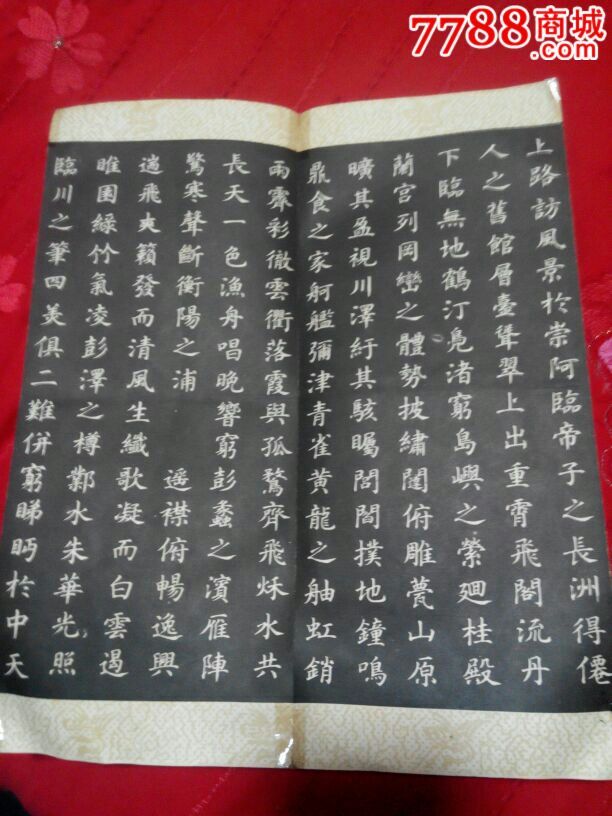 7788商城
.com
上路訪風景於崇阿臨帝子之長洲得僊
人之舊館層臺聳翠上出重霄飛閣流丹
下臨無地鶴汀鳧渚窮島嶼之縈廻桂殿
蘭宮列岡巒之體勢披繡闥俯雕甍山原
曠其盈視川澤紆其駭矚閭閻撲地鐘鳴
鼎食之家舸艦彌津青雀黃龍之舳虹銷
雨霽彩徹雲衢落霞與孤鶩齊飛秌水共
長天一色漁舟唱晚響窮彭蠡之濱雁陣
驚寒聲斷衡陽之浦 遥襟俯暢逸興
遄飛爽籟發而清風生纖歌凝而白雲遏
睢園綠竹氣凌彭澤之樽鄴水朱華光照
臨川之筆四美俱二難併窮睇眄於中天